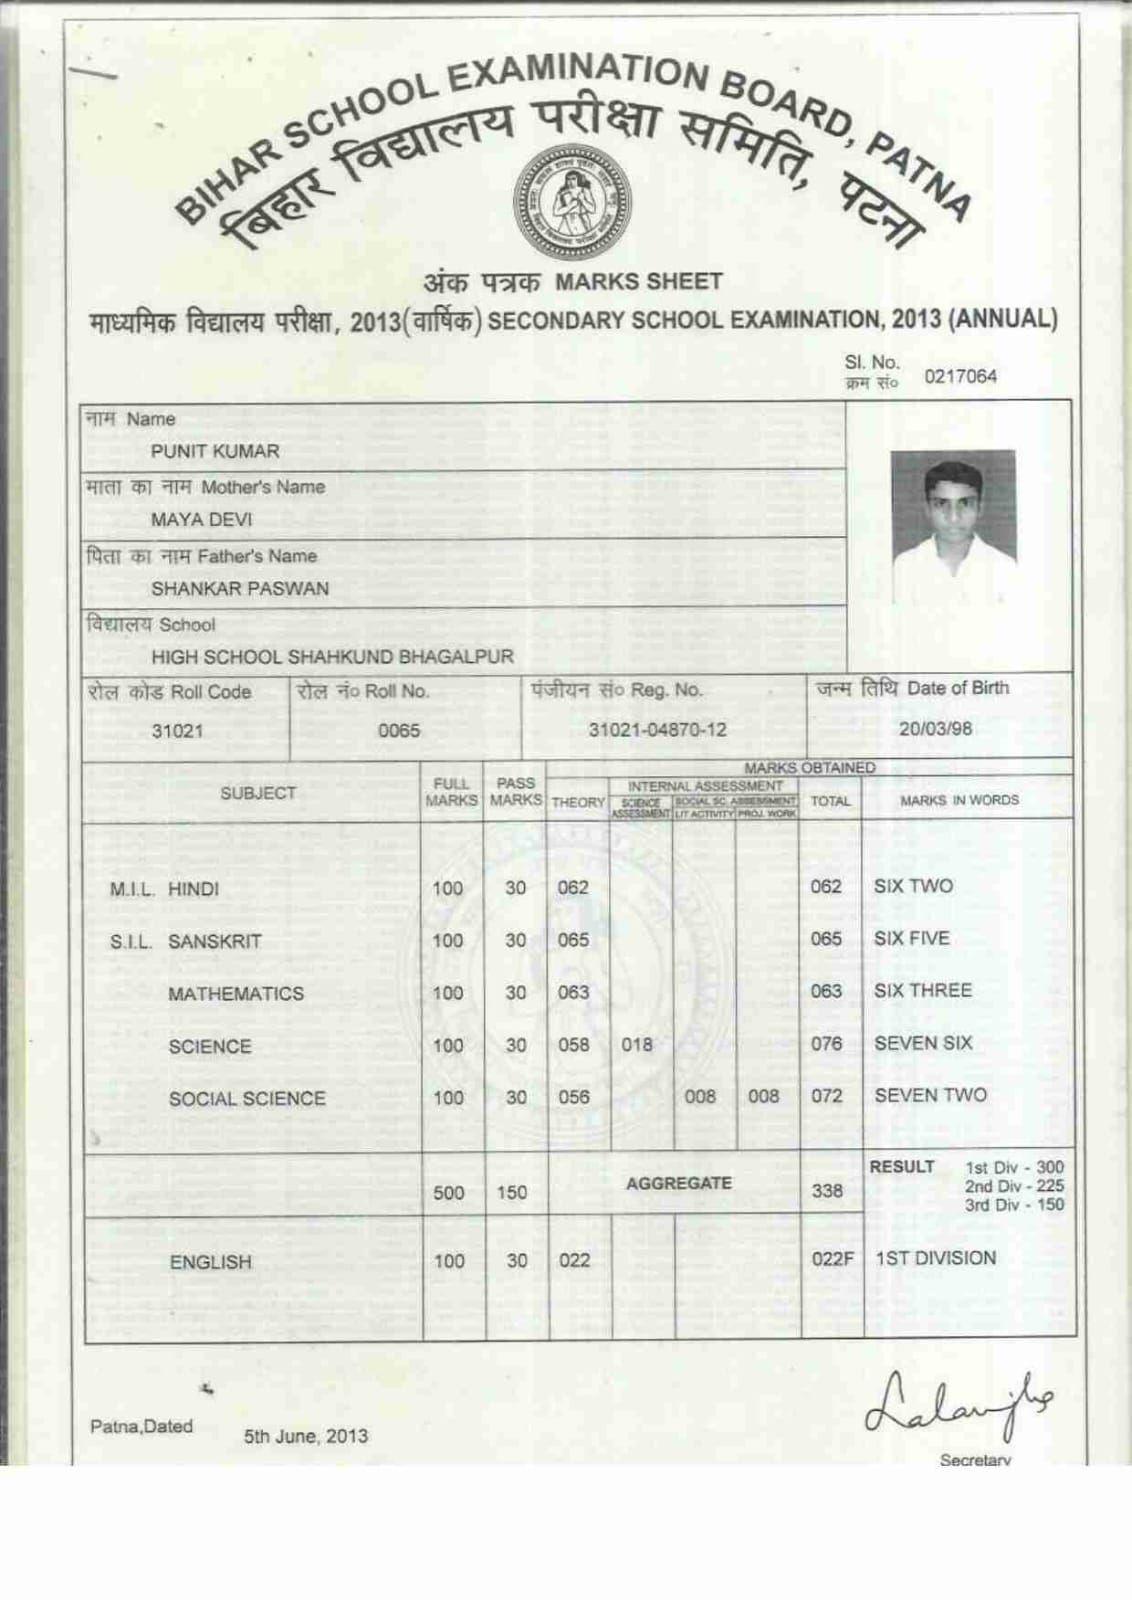 BIHAR SCHOOL EXAMINATION BOARD, PATNA
बिहार विद्यालय परीक्षा समिति, पटना
अंक पत्रक MARKS SHEET
माध्यमिक विद्यालय परीक्षा, 2013(वार्षिक) SECONDARY SCHOOL EXAMINATION, 2013 (ANNUAL)
Sl. No.
क्रम सं० 0217064
नाम Name
PUNIT KUMAR
माता का नाम Mother's Name
MAYA DEVI
पिता का नाम Father's Name
SHANKAR PASWAN
विद्यालय School
HIGH SCHOOL SHAHKUND BHAGALPUR
रोल कोड Roll Code रोल नं० Roll No. पंजीयन सं० Reg. No. जन्म तिथि Date of Birth
31021 0065 31021-04870-12 20/03/98
MARKS OBTAINED
SUBJECT FULL MARKS PASS MARKS THEORY INTERNAL ASSESSMENT TOTAL MARKS IN WORDS
SCIENCE ASSESSMENT SOCIAL SC. ASSESSMENT
LIT ACTIVITY PROJ. WORK
M.I.L. HINDI 100 30 062 062 SIX TWO
S.I.L. SANSKRIT 100 30 065 065 SIX FIVE
MATHEMATICS 100 30 063 063 SIX THREE
SCIENCE 100 30 058 018 076 SEVEN SIX
SOCIAL SCIENCE 100 30 056 008 008 072 SEVEN TWO
500 150 AGGREGATE 338 RESULT 1st Div - 300
2nd Div - 225
3rd Div - 150
ENGLISH 100 30 022 022F 1ST DIVISION
Patna,Dated 5th June, 2013
Secretary